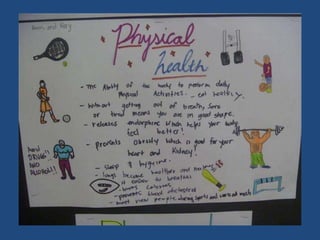 and
Physical
health
- The Ability of the body to perform daily
Physical Activities. - eat healthy.
- Without getting out of breath, sore
or tired means you are in good shape.
- releases endorphins which helps your body
feel better!
- prevents obesity which is good for your
heart and Kidney!
NO
DRUGS!!
NO
ALCOHOL!!
- sleep & hygiene.
- lungs become healthier and
it easier to breathe
- burns calories
- prevents blood cholesterol
- meet new people during sports and social meets